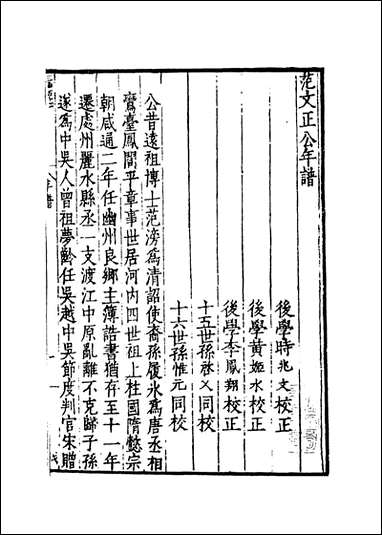 范文正公年譜
後學時兆文校正
後學黃姬水校正
後學李鳳翔校正
十五世孫啓乂同校
十六世孫惟元同校
公昔遠祖博士范滂爲清詔使裔孫履氷爲唐丞相
鸞臺鳳閣平章事世居河内四世祖上柱國隋懿宗
朝咸通二年任幽州良鄉主簿誥書猶存至十一年
遷處州麗水縣丞一支渡江中原亂離不克歸子孫
遂爲中吳人曾祖夢齡任吳越中吳節度判官宋贈